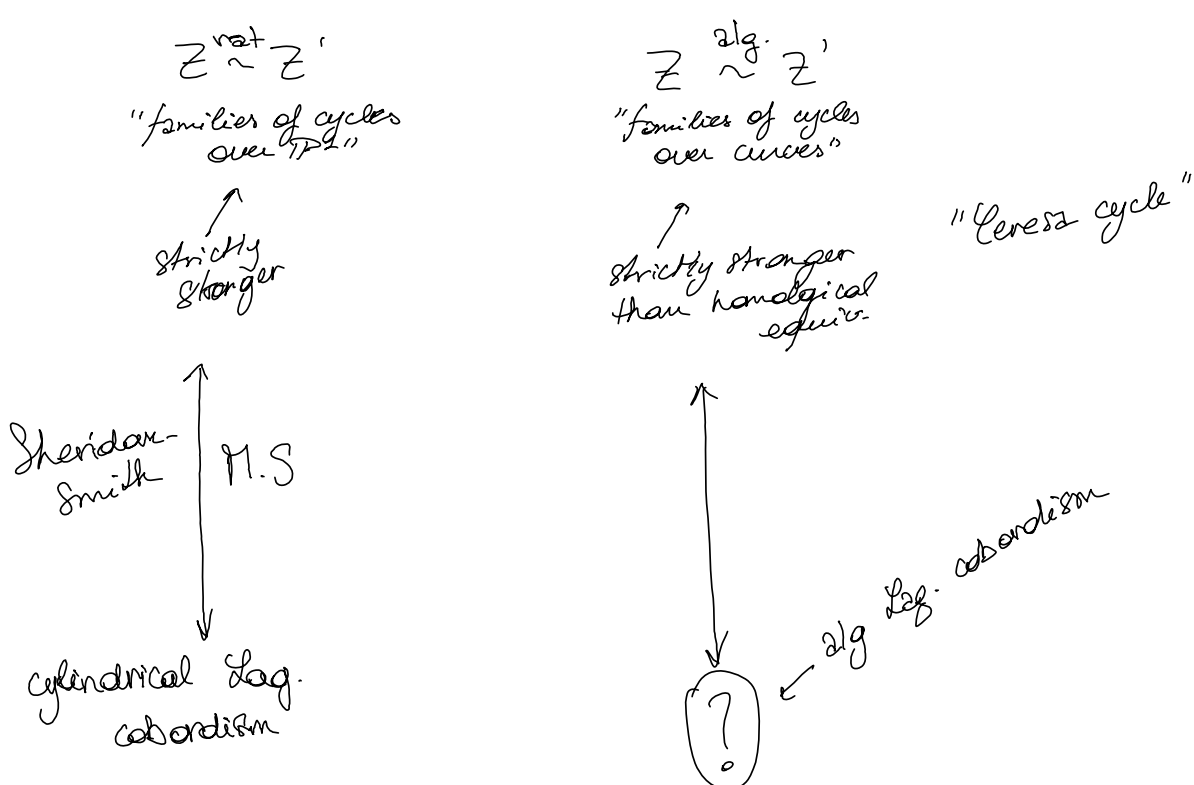 Z rat ~ Z'
"families of cycles
over P1"
strictly
stronger
Sheridan-
Smith
M.S
cylindrical Lag.
cobordism
Z alg. ~ Z'
"families of cycles
over curves"
strictly stronger
than homological
equiv.
"Ceresa cycle"
?
alg Lag. cobordism